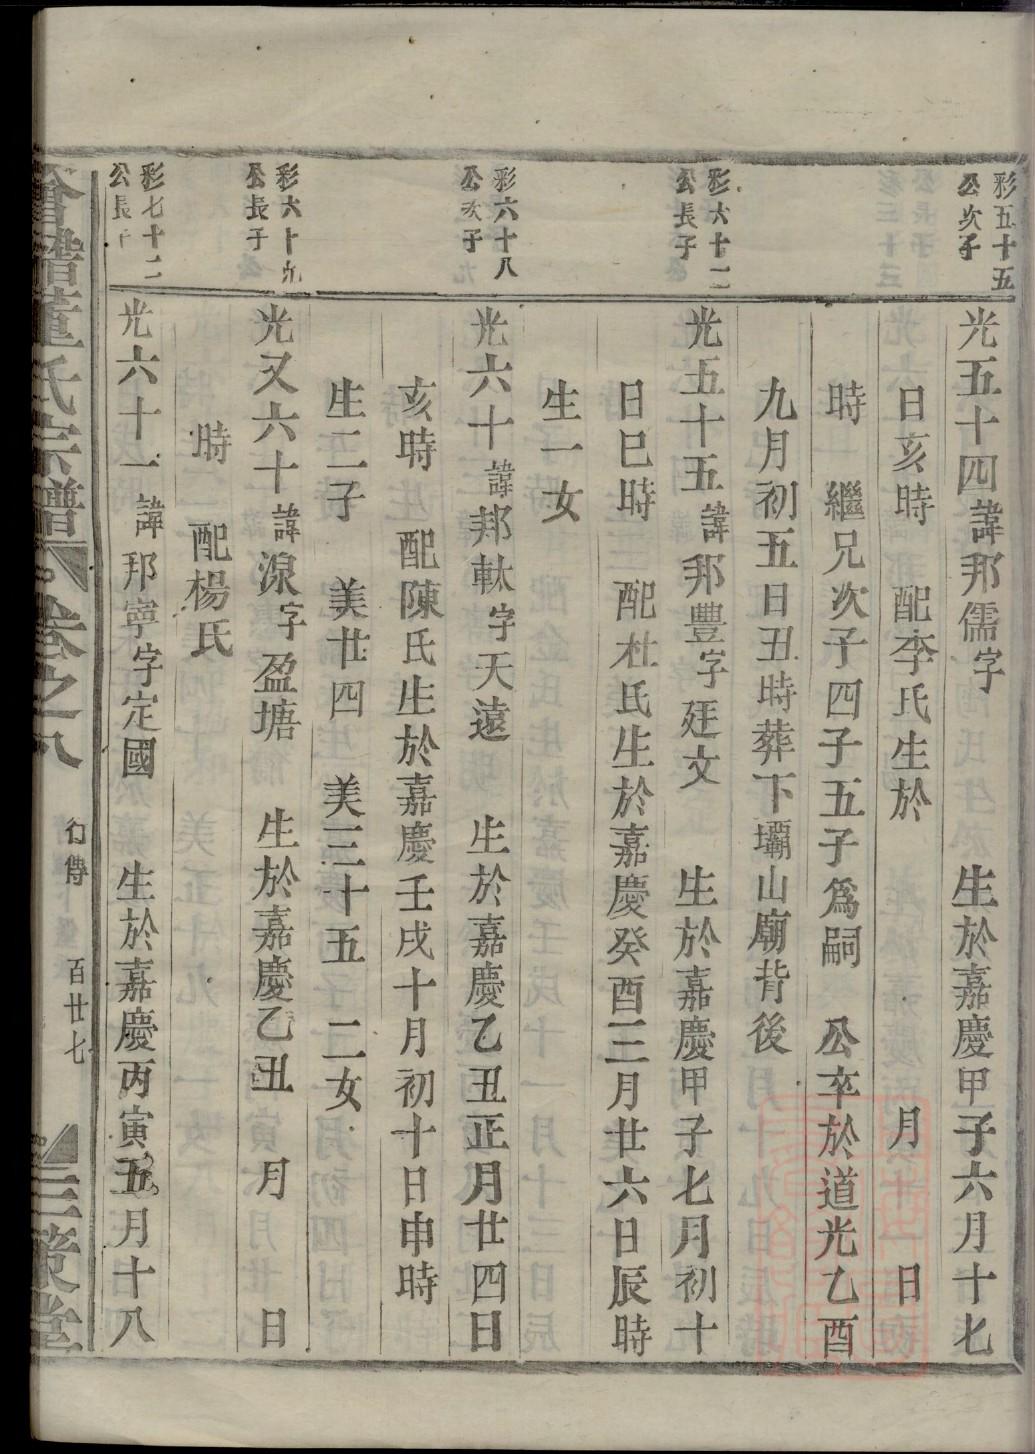 彩五十五
公次子
光五十四諱邦儒字 生於嘉慶甲子六月十七
日亥時 配李氏生於 月 日
時 繼兄次子四子五子爲嗣 公卒於道光乙酉
九月初五日丑時葬下壩山廟背後
彩六十二
公長子
光五十五諱邦豐字廷文 生於嘉慶甲子七月初十
日巳時 配杜氏生於嘉慶癸酉三月廿六日辰時
生一女
彩六十八
公次子
光六十諱邦軑字天遠 生於嘉慶乙丑正月廿四日
亥時 配陳氏生於嘉慶壬戌十月初十日申時
生二子 美廿四 美三十五 二女
彩六十九
公長子
光又六十諱湶字盈塘 生於嘉慶乙丑 月 日
時 配楊氏
彩七十二
公長子
光六十一諱邦寧字定國 生於嘉慶丙寅五月十八
會稽董氏宗譜 卷之八 百廿七 三策堂